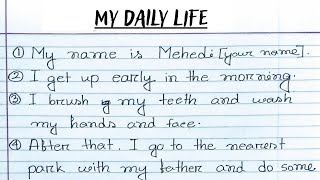 MY DAILY LIFE
① My name is Mehedi [your name].
② I get up early in the morning.
③ I brush my teeth and wash
my hands and face.
④ After that. I go to the nearest
park with my father and do some